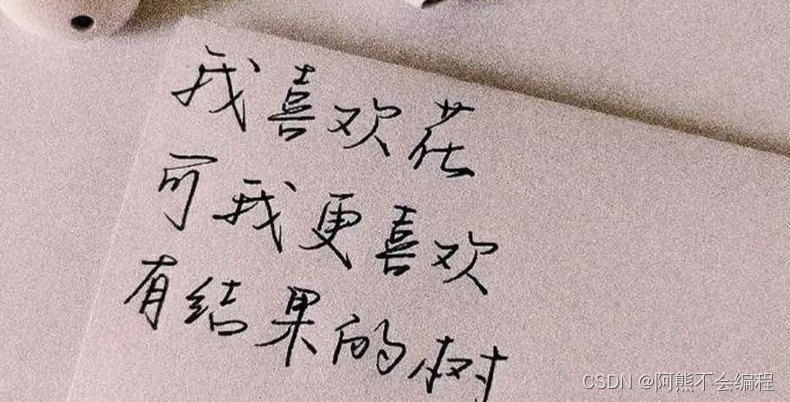 我喜欢花
可我更喜欢
有结果的树
CSDN @阿熊不会编程